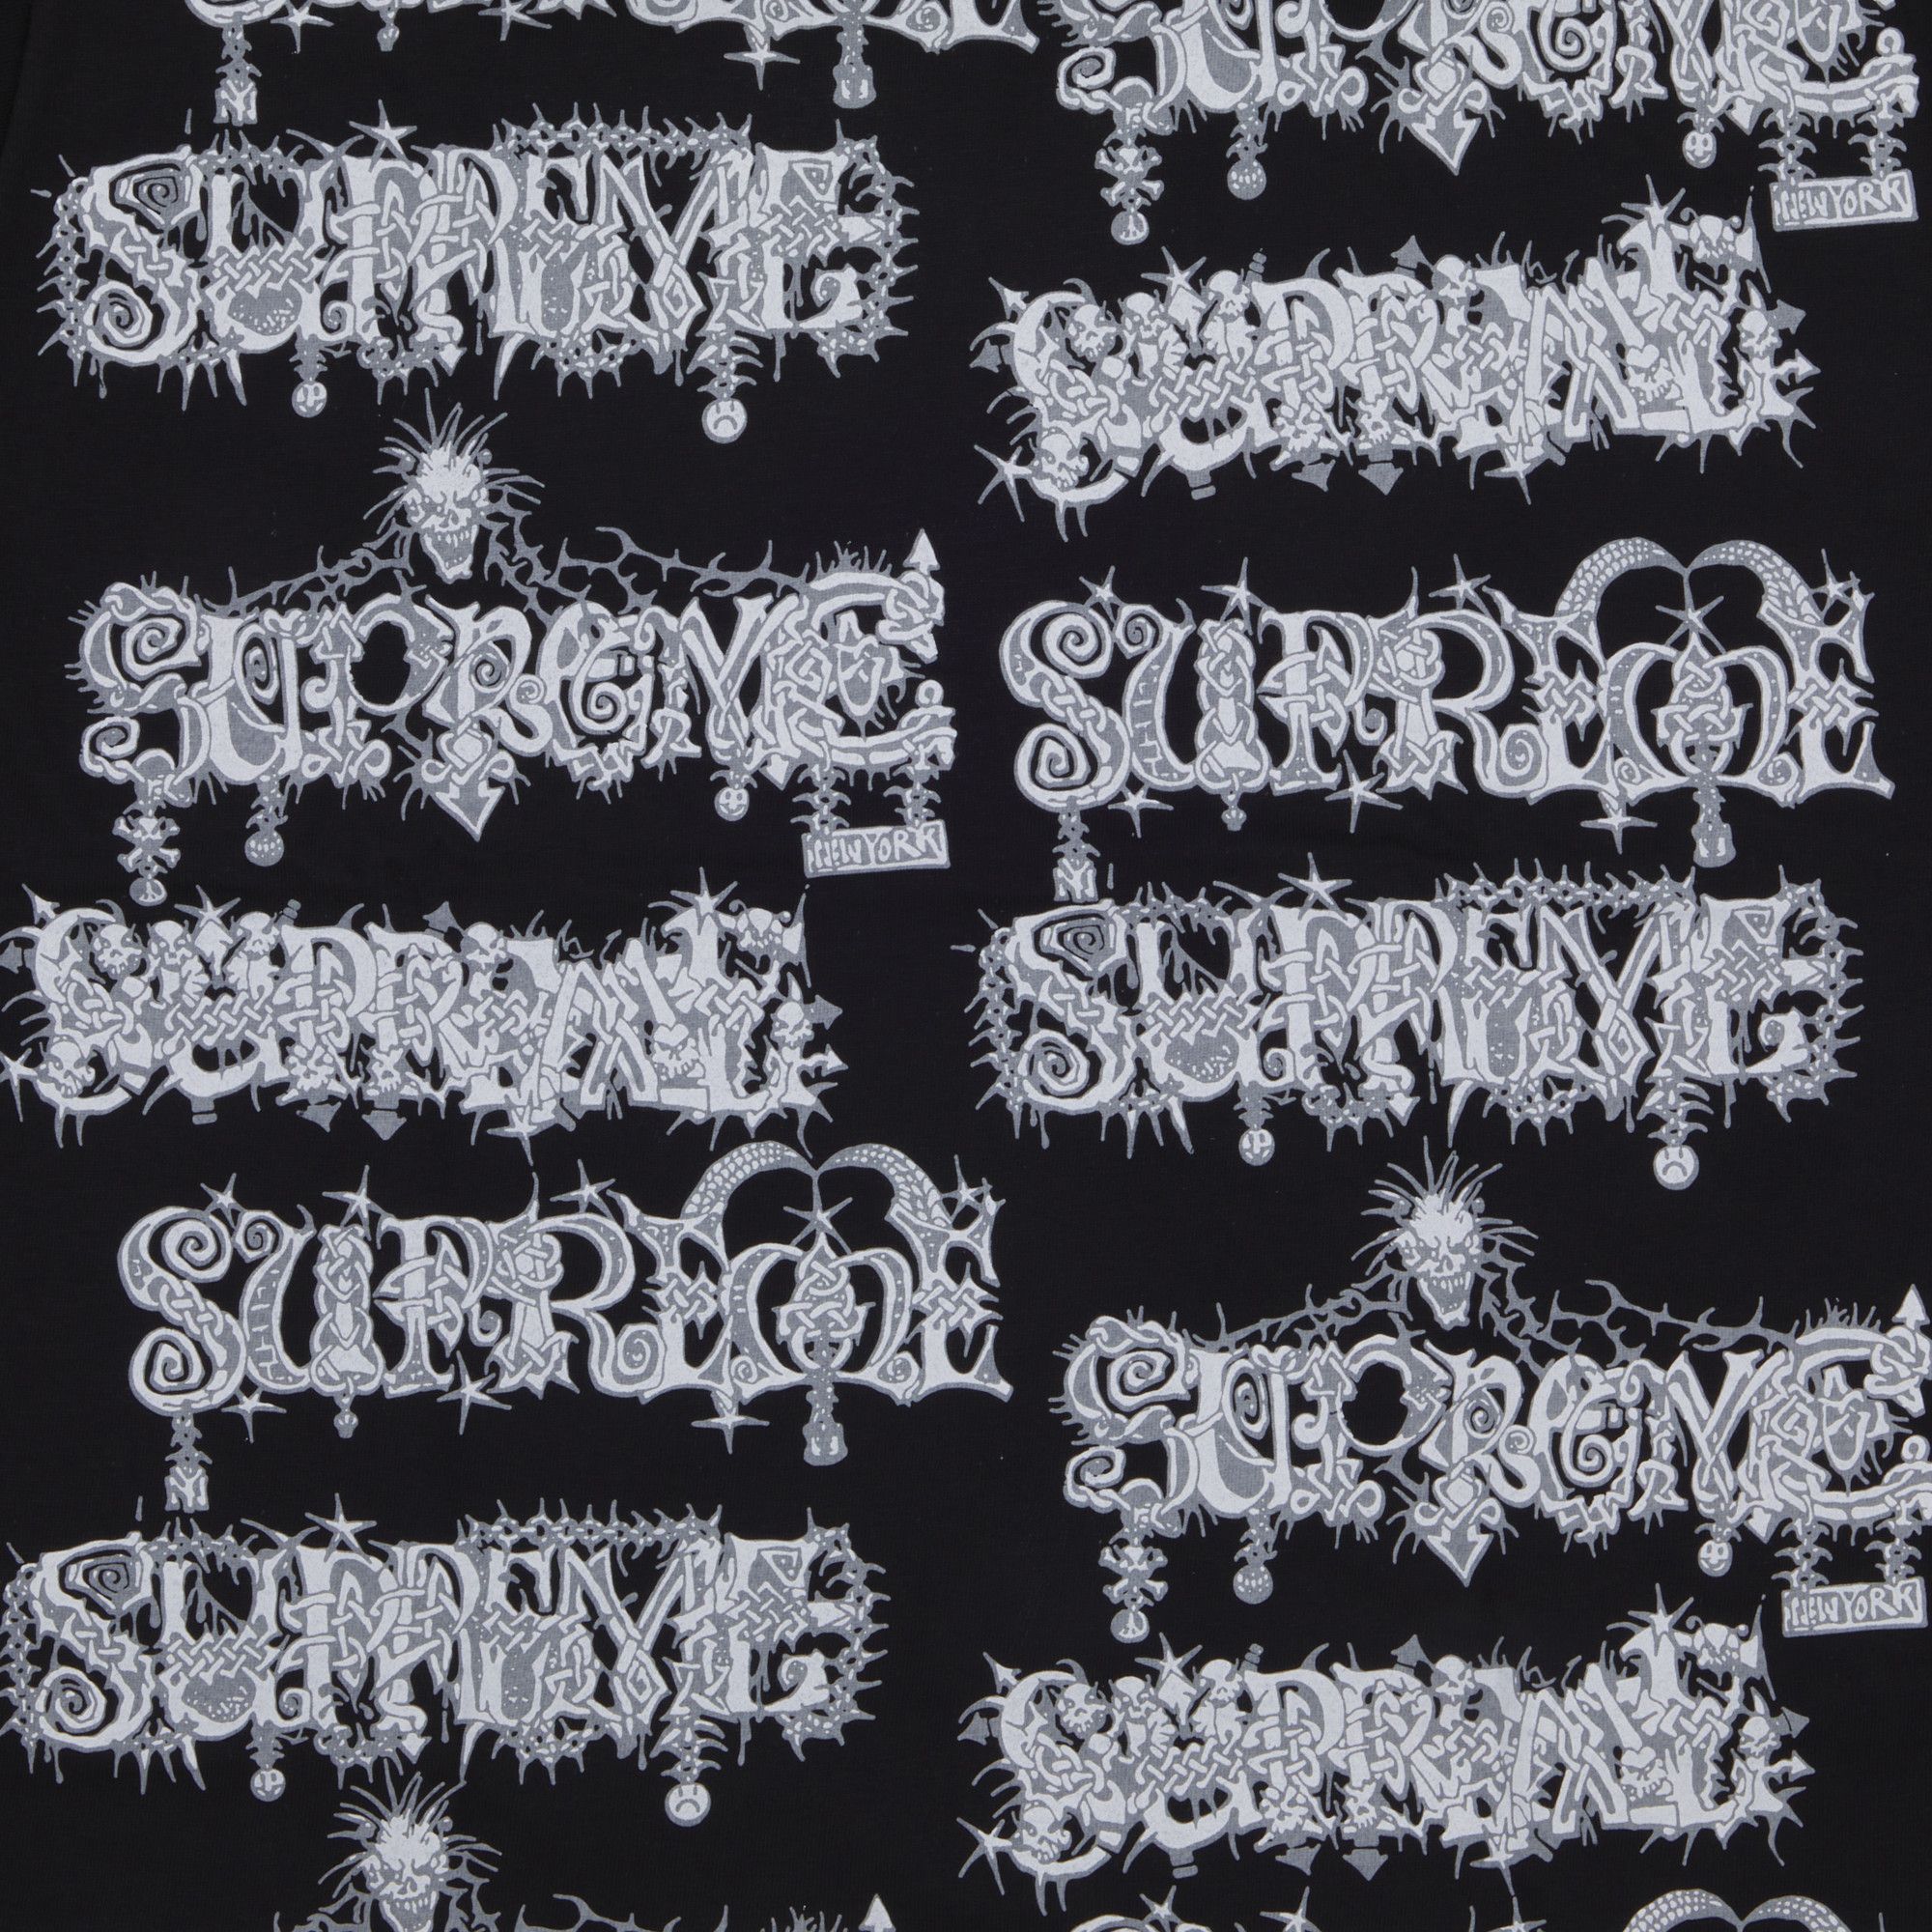 SUPREME
NY
NEW YORK
SUPREME
SUPREME
SUPREME
SUPREME
NEW YORK
NY
SUPREME
SUPREME
SUPREME
SUPREME
NY
NEW YORK
SUPREME
SUPREME